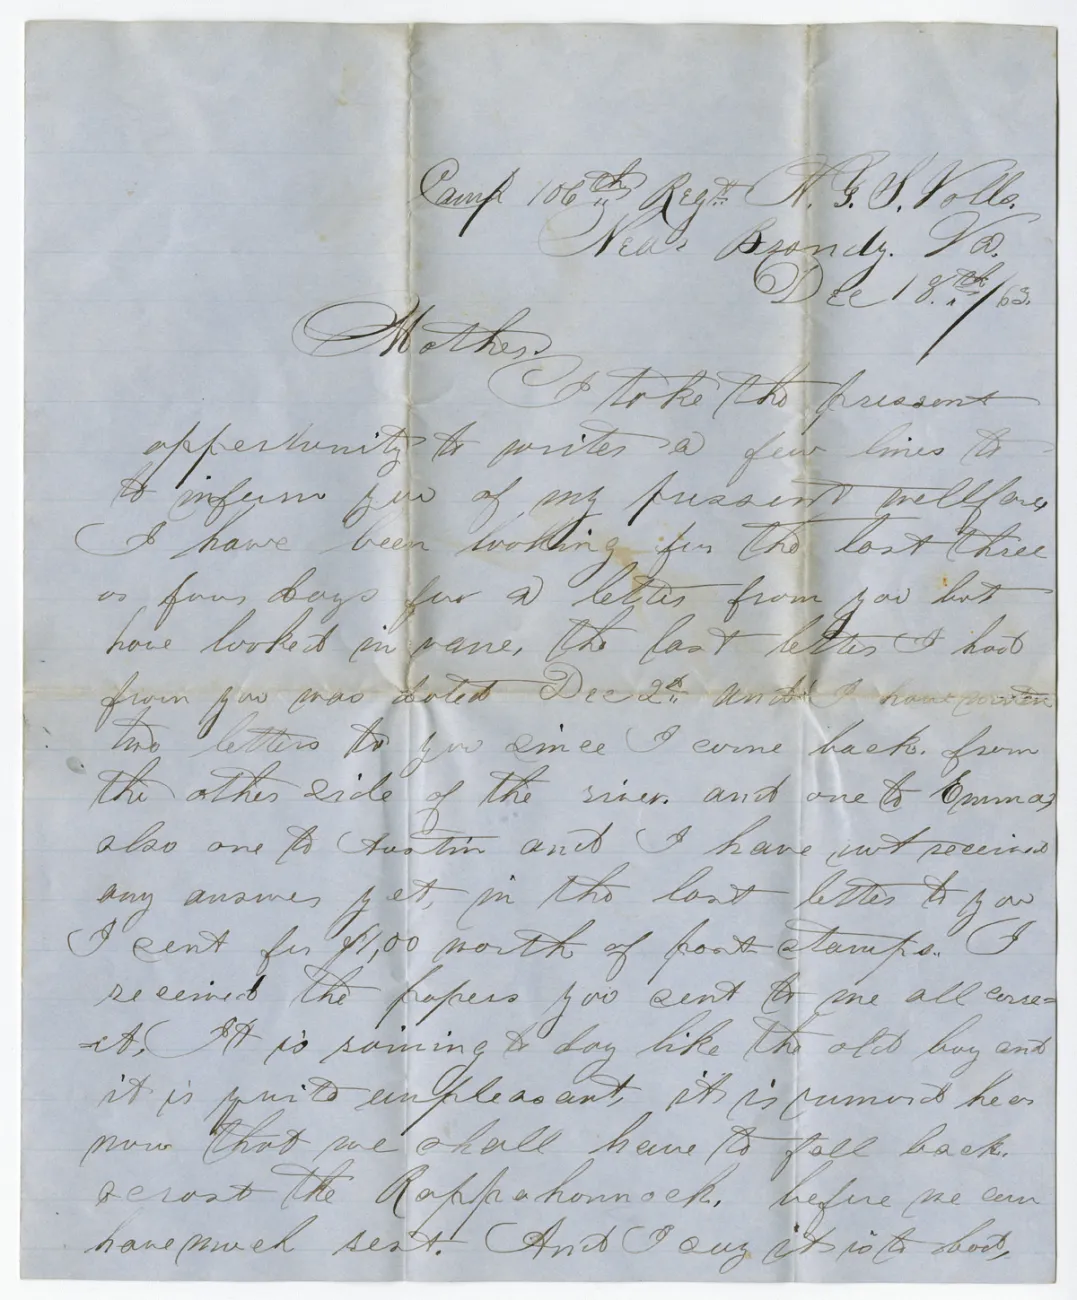 Camp 106th Regt N. Y. S. Volls.
Near Brandy. Va.
Dec 18.th /63.
Mother.
I take the present
oppertunity to write a few lines to
to inform you of my present wellfare
I have been looking for the last three
or four days for a letter from you but
have looked in vane, the last letter I had
from you was dated Dec 2th and I have writen
two letters to you since I come back. from
the other side of the river. and one to Emma,
also one to Austin and I have not received
any answer yet, in the last letter to you
I sent for $1,00 worth of post stamps. I
received the papers you sent to me all corre=
-ct, It is raining to day like the old boy and
it is quite unpleasant, it is rumord hear
now that we shall have to fall back.
acrost the Rappahonnock, before we can
have much rest. And I say it is to bad,